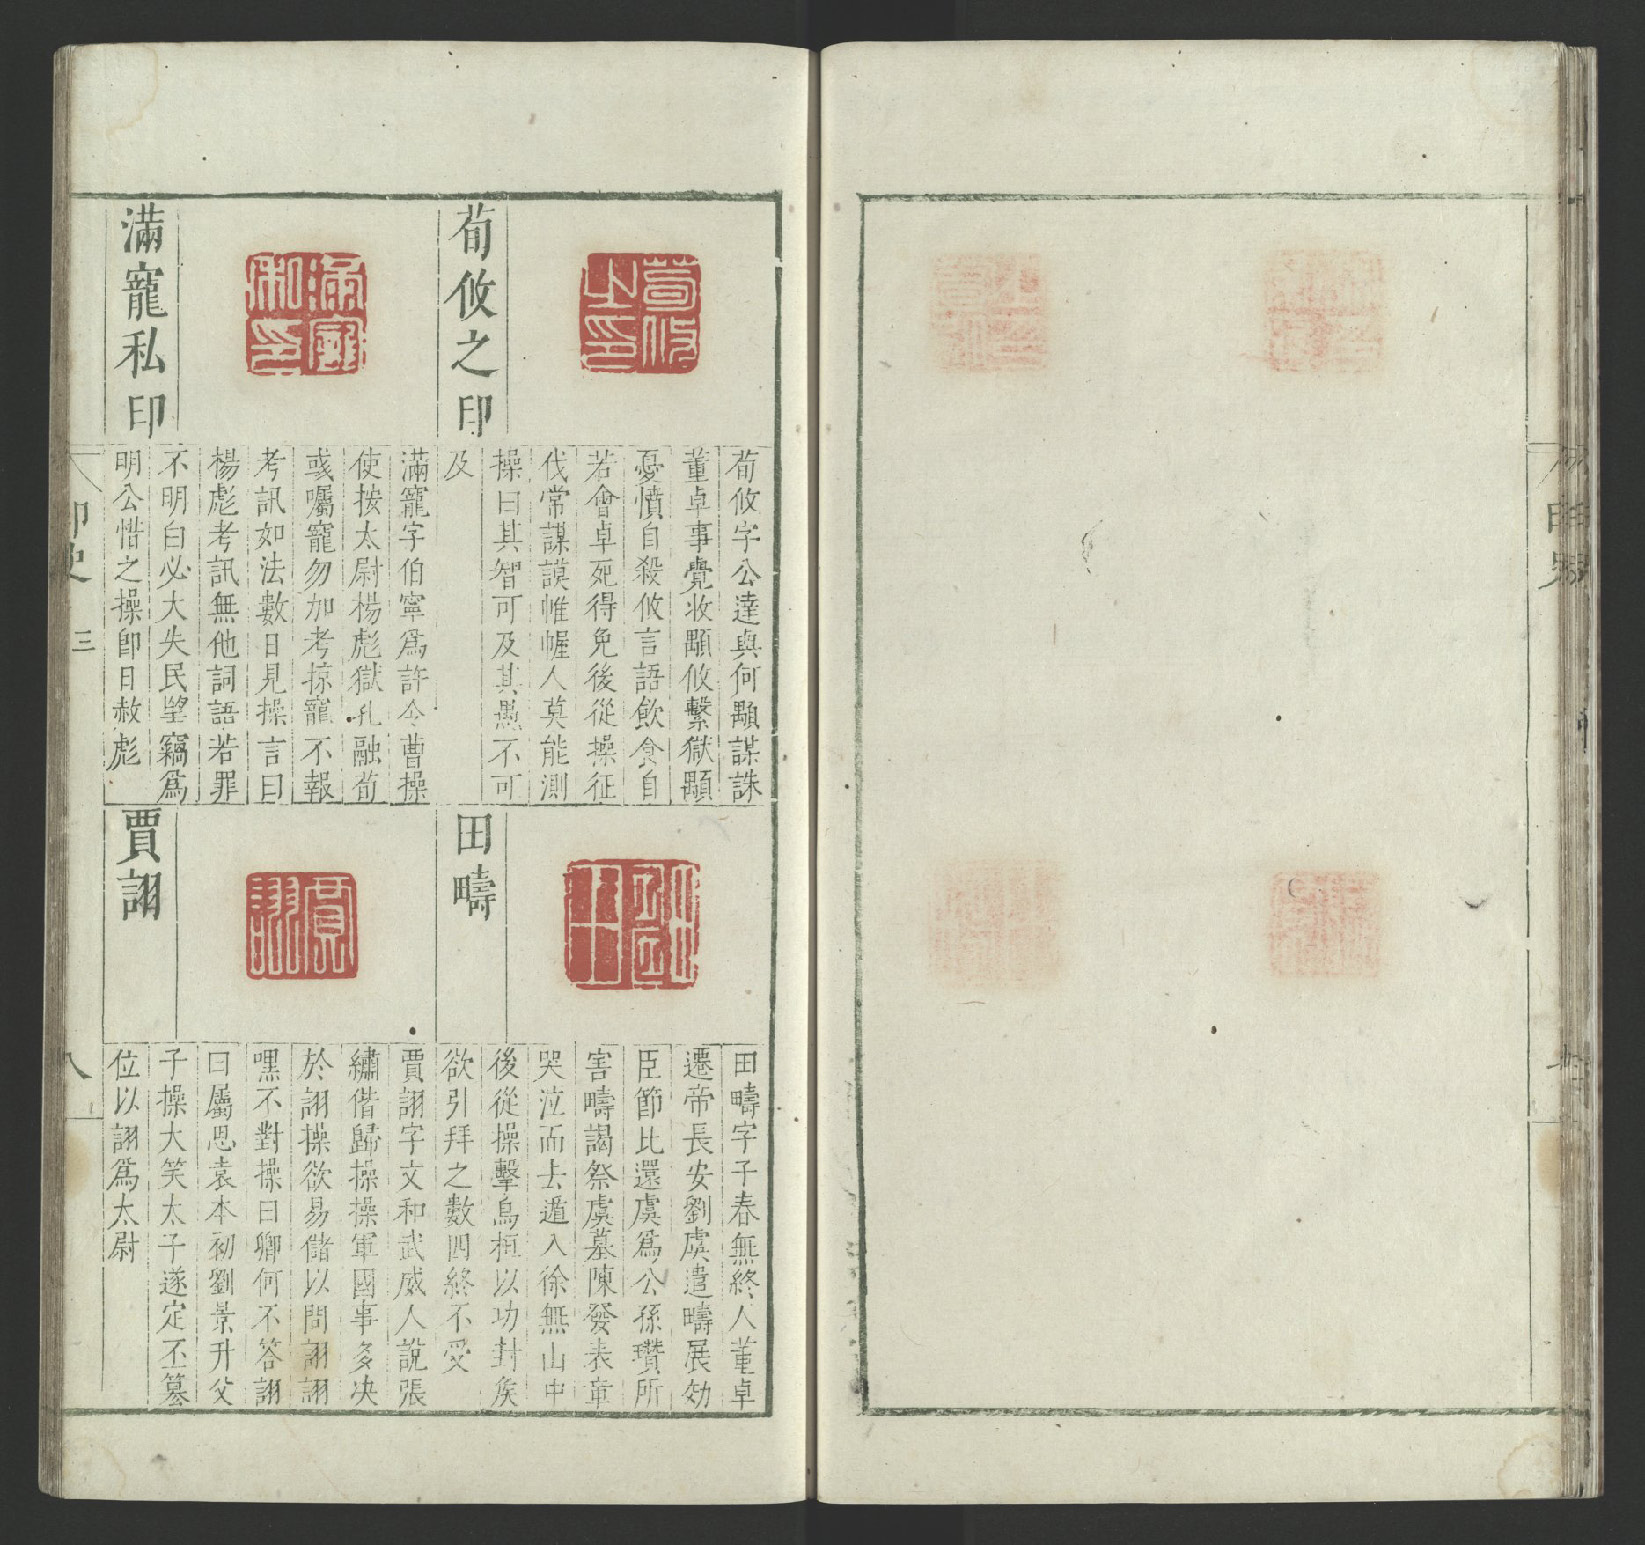 荀攸之印
荀攸字公達與何顒謀誅
董卓事覺收顒攸繫獄顒
憂憤自殺攸言語飲食自
若會卓死得免後從操征
伐常謀謨帷幄人莫能測
操曰其智可及其愚不可
及
滿寵私印
滿寵字伯寧爲許令曹操
使按太尉楊彪獄孔融荀
彧囑寵勿加考掠寵不報
考訊如法數日見操言曰
楊彪考訊無他詞語若罪
不明白必大失民望竊爲
明公惜之操卽日赦彪
田疇
田疇字子春無終人董卓
遷帝長安劉虞遣疇展効
臣節比還虞爲公孫瓚所
害疇謁祭虞墓陳發表章
哭泣而去遁入徐無山中
後從操擊烏桓以功封矦
欲引拜之數四終不受
賈詡
賈詡字文和武威人說張
繡偕歸操操軍國事多决
於詡操欲易儲以問詡詡
嘿不對操曰卿何不答詡
曰屬思袁本初劉景升父
子操大笑太子遂定丕篡
位以詡爲太尉
印史
三
八